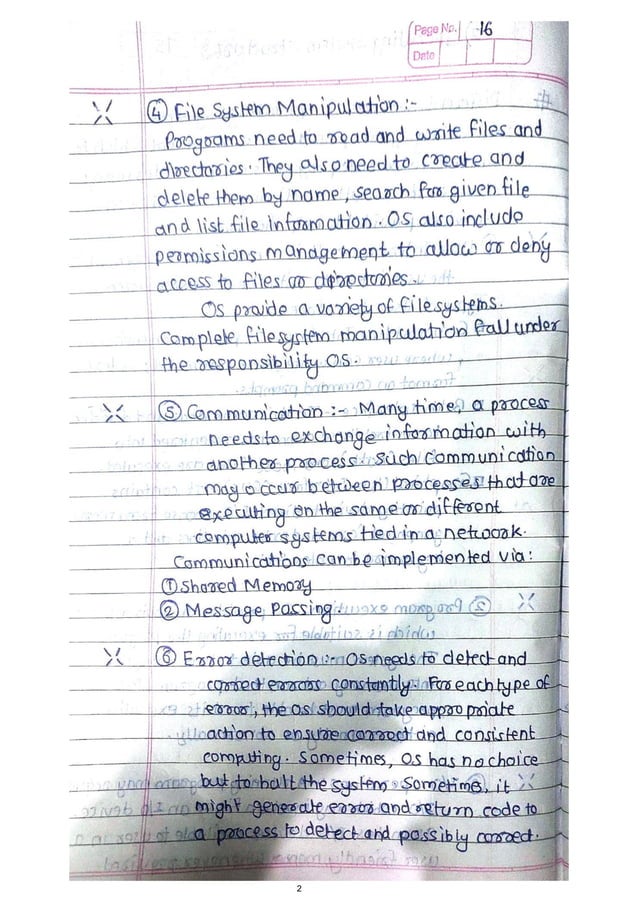 Page No. 16
Date
④ File System Manipulation :-
Programs need to read and write files and
directories. They also need to create and
delete them by name, search for given file
and list file information. OS, also include
permissions management to allow or deny
access to files or directories.
OS provide a variety of filesystems.
Complete filesystem manipulation fall under
the responsibility OS.
⑤ Communication :- Many time, a process
needs to exchange information with
another process. Such communication
may occur between processes that are
executing on the same or different
computer systems tied in a network.
Communications can be implemented via:
① Shared Memory
② Message Passing.
⑥ Error detection :- OS needs to detect and
correct errors constantly. For each type of
error, the OS should take appropriate
action to ensure correct and consistent
computing. Sometimes, OS has no choice
but to halt the system. Sometime, it
might generate error and return code to
a process to detect and possibly correct.
2